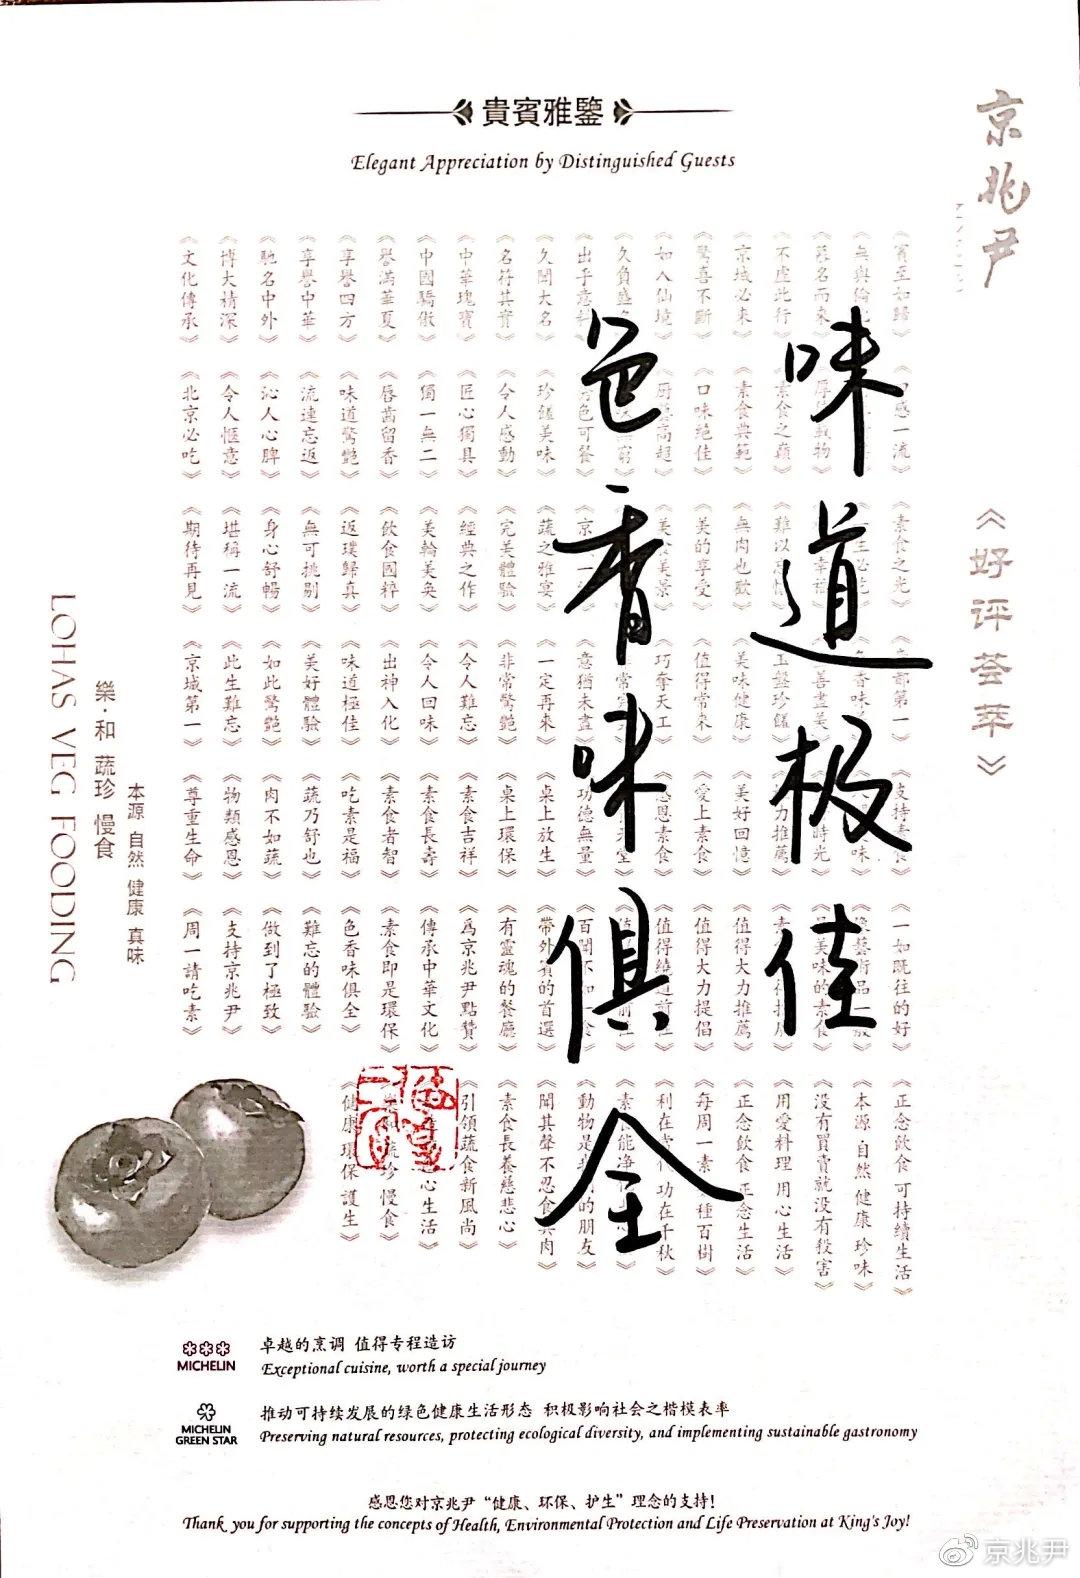 貴賓雅鑒
Elegant Appreciation by Distinguished Guests
京兆尹
《好评荟萃》
味道极佳
色香味俱全
《賓至如歸》《口感一流》《素食之光》第一》《支持素食》《一如既往的好》《正念飲食 可持續生活》
《無與倫 《本源 自然 健康 珍味》
《慕名而来 美味的素食 《没有買賣就没有殺害》
《不虚此行》《素食之巔》《難以 《玉盤珍饈》 力推薦》《用愛料理 用心生活》
《京城必來》《素食典範》《無肉也歡》《美味健康》《美好回憶》《值得大力推薦》《正念飲食 正念生活》
《驚喜不斷》《口味絕佳》《美的享受》《值得常來》《愛上素食》《值得大力提倡》《每周一素 種百樹》
《如入仙境》 高超》 美景》《巧奪天工》《感恩素食》《值得繞道前 《利在 功在千秋》
《久負盛
《出乎意料 色可餐》《意猶未盡》《功德無量》《百聞不如一 《動物是 的朋友》
《久聞大名》《珍饈美味》《蔬之雅宴》《一定再來》《桌上放生》《帶外賓的首選》《聞其聲不忍食其肉》
《名符其實》《令人感動》《完美體驗》《非常驚艷》《桌上環保》《有靈魂的餐廳》《素食長養慈悲心》
《中華瑰寶》《匠心獨具》《經典之作》《令人難忘》《素食吉祥》《爲京兆尹點贊》《引領蔬食新風尚》
《中國驕傲》《獨一無二》《美輪美奂》《令人回味》《素食長壽》《傳承中華文化》 心生活》
《譽滿華夏》《唇齒留香》《飲食國粹》《出神入化》《素食者智》《素食即是環保》 蔬珍 慢食》
《享譽四方》《味道驚艷》《返璞歸真》《味道極佳》《吃素是福》《色香味俱全》《健康 環保 護生》
《享譽中華》《流連忘返》《無可挑剔》《美好體驗》《蔬乃舒也》《難忘的體驗》
《馳名中外》《沁人心脾》《身心舒暢》《如此驚艷》《肉不如蔬》《做到了極致》
《博大精深》《令人愜意》《堪稱一流》《此生難忘》《物類感恩》《支持京兆尹》
《文化傳承》《北京必吃》《期待再見》《京城第一》《尊重生命》《周一請吃素》
本源 自然 健康 真味
樂·和 蔬珍 慢食
LOHAS VEG FOODING
MICHELIN
卓越的烹调 值得专程造访
Exceptional cuisine, worth a special journey
MICHELIN
GREEN STAR
推动可持续发展的绿色健康生活形态 积极影响社会之楷模表率
Preserving natural resources, protecting ecological diversity, and implementing sustainable gastronomy
感恩您对京兆尹“健康、环保、护生”理念的支持!
Thank you for supporting the concepts of Health, Environmental Protection and Life Preservation at King's Joy!
京兆尹